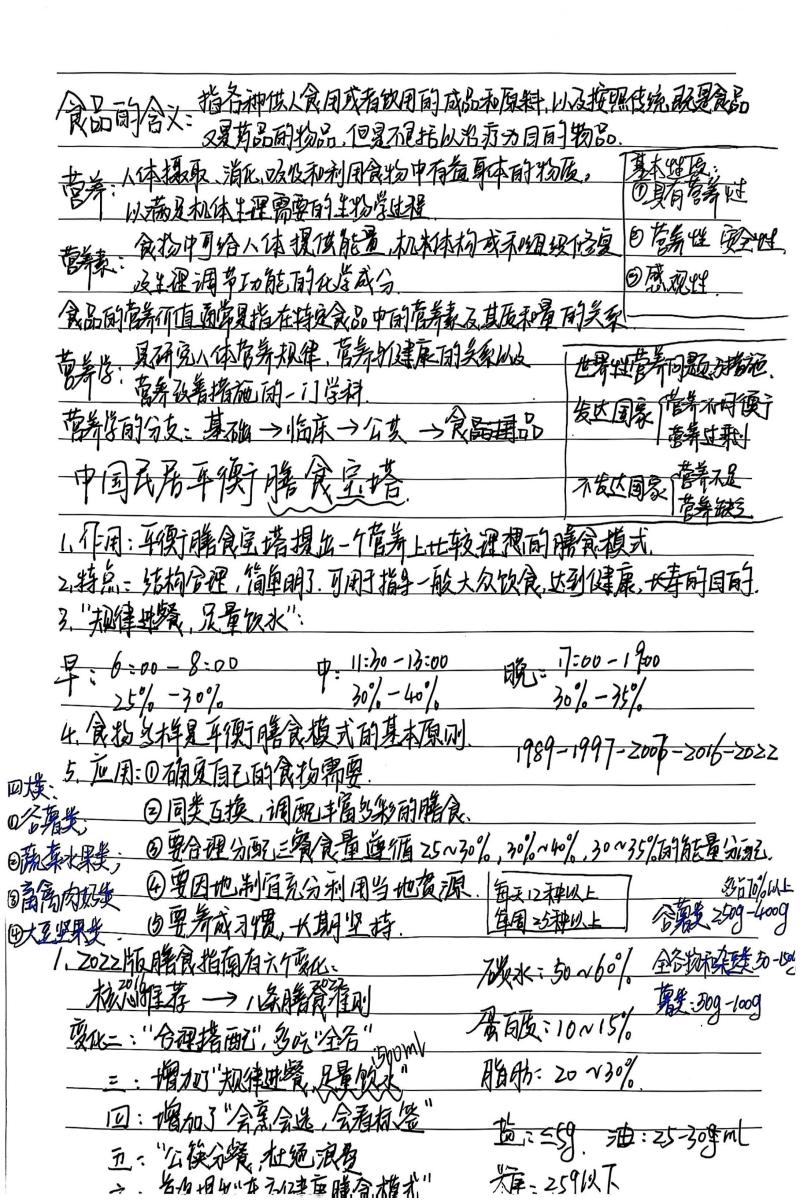 食品的含义：指各种供人食用或者饮用的成品和原料，以及按照传统既是食品
又是药品的物品，但是不包括以治疗为目的物品.
营养：人体摄取、消化、吸收和利用食物中有益身体的物质。
以满足机体生理需要的生物学过程
基本性质：
①具有营养性
② 营养性 安全性
③ 感观性
营养素：食物中可给人体提供能量，机体构成和组织修复
及生理调节功能的化学成分
食品的营养价值通常是指在特定食品中的营养素及其质和量的关系
营养学：是研究人体营养规律，营养与健康的关系以及
营养改善措施的一门学科.
营养学的分支：基础→临床→公共→食品
世界性营养问题及措施.
发达国家 营养不平衡
营养过剩
不发达国家 营养不足
营养缺乏
中国居民平衡膳食宝塔.
1.作用：平衡膳食宝塔提出一个营养上比较理想的膳食模式.
2.特点：结构合理，简单明了.可用于指导一般大众饮食，达到健康，长寿的目的.
3."规律进餐，足量饮水"：
早：6:00-8:00 中：11:30-13:00 晚：17:00-19:00
25%-30% 30%-40% 30%-35%
4.食物多样是平衡膳食模式的基本原则.
1989-1997-2007-2016-2022
5.应用：①确定自己的食物需要.
②同类互换，调配丰富多彩的膳食.
③要合理分配三餐食量遵循25~30%，30%~40%，30~35%的能量分配.
④要因地制宜充分利用当地资源
⑤要养成习惯，长期坚持.
四大类：
①谷薯类；
②蔬菜水果类；
③畜禽肉奶类
④大豆坚果类.
每天12种以上
每周25种以上
谷薯类250g-400g
全谷物和杂豆类50-150g
薯类：50g-100g
1.2022版膳食指南有六个变化：
核心推荐→八条膳食准则
变化二："合理搭配"，多吃"全谷"
三：增加了"规律进餐，足量饮水"
1500ml
四：增加了"会烹会选，会看标签"
五："公筷分餐，杜绝浪费
碳水：50~60%
蛋白质：10~15%
脂肪：20~30%
盐：≤5g 油：25-30g
糖：25g以下